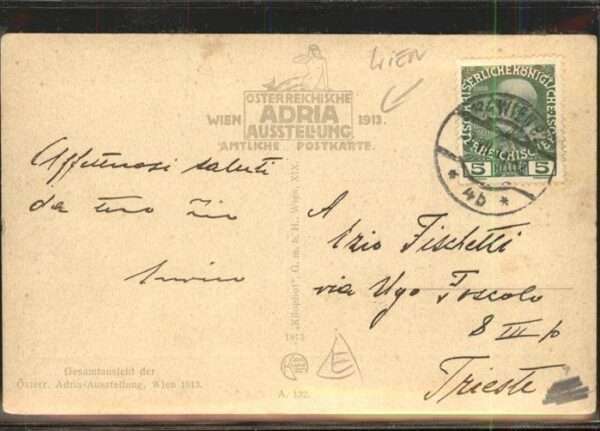 WIEN
ÖSTERREICHISCHE
WIEN ADRIA 1913.
AUSSTELLUNG
AMTLICHE POSTKARTE.
KAISERLICHE KÖNIGLICHE
5 5
WIEN
* 4b *
Affettuosi saluti
da tuo zio
Enrico
A
Ezio Fischetti
via Ugo Foscolo
8 III p
Trieste
"Kilophot", G. m. b. H., Wien, XIX.
1913
E
Gesamtansicht der
Österr. Adria-Ausstellung, Wien 1913.
A. 132.